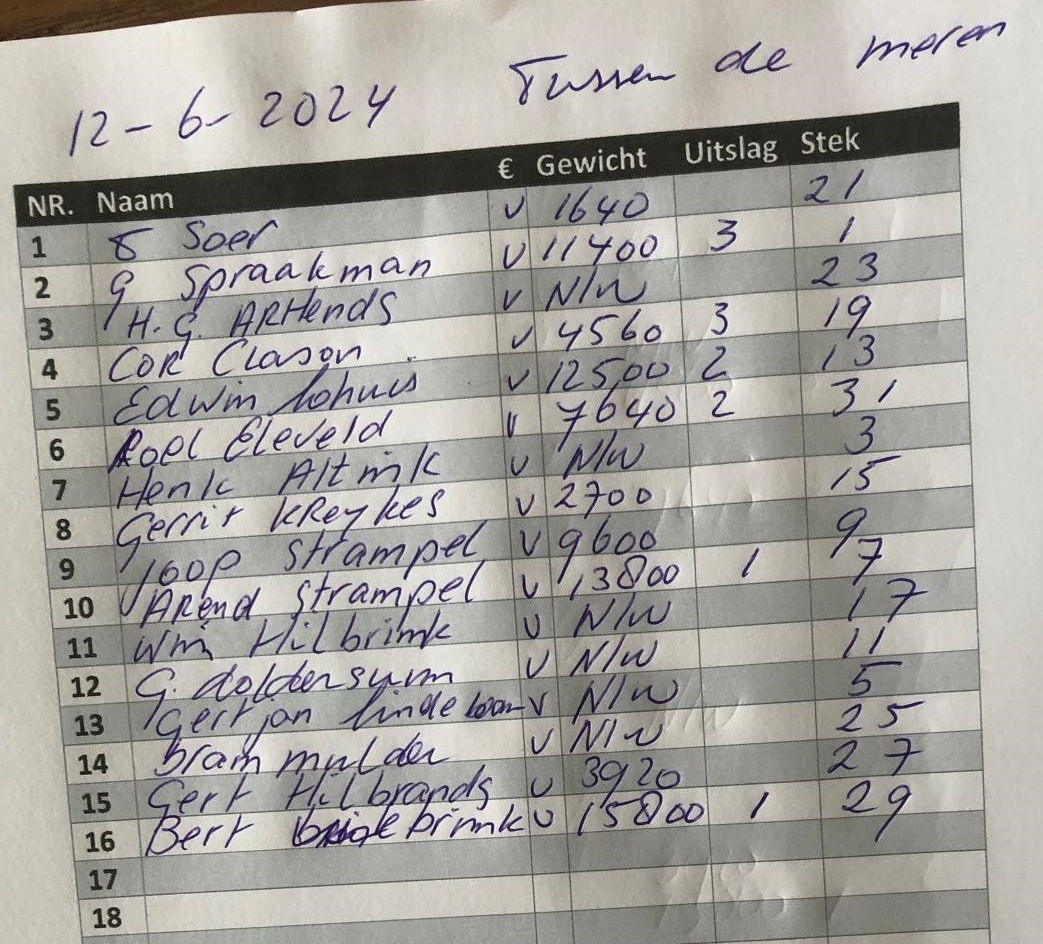 12-6-2024 Tussen de meren
NR. Naam € Gewicht Uitslag Stek
1 Soer v 1640 21
2 G Spraakman v 11400 3 1
3 H.G. ARHends v N/W 23
4 COR Clason v 4560 3 19
5 Edwin Lohuis v 12500 2 13
6 Roel Eleveld v 7640 2 31
7 Henk Altink v N/W 3
8 Gerrit KReykes v 2700 15
9 Joop Strampel v 9600 9
10 AREnd Strampel v 13800 1 7
11 Wim Hilbrink v N/W 17
12 G. doldersum v N/W 11
13 Gertjan lindeboom v N/W 5
14 bram mulder v N/W 25
15 Gert Hilbrands v 3920 27
16 Bert brink v 15800 1 29
17
18